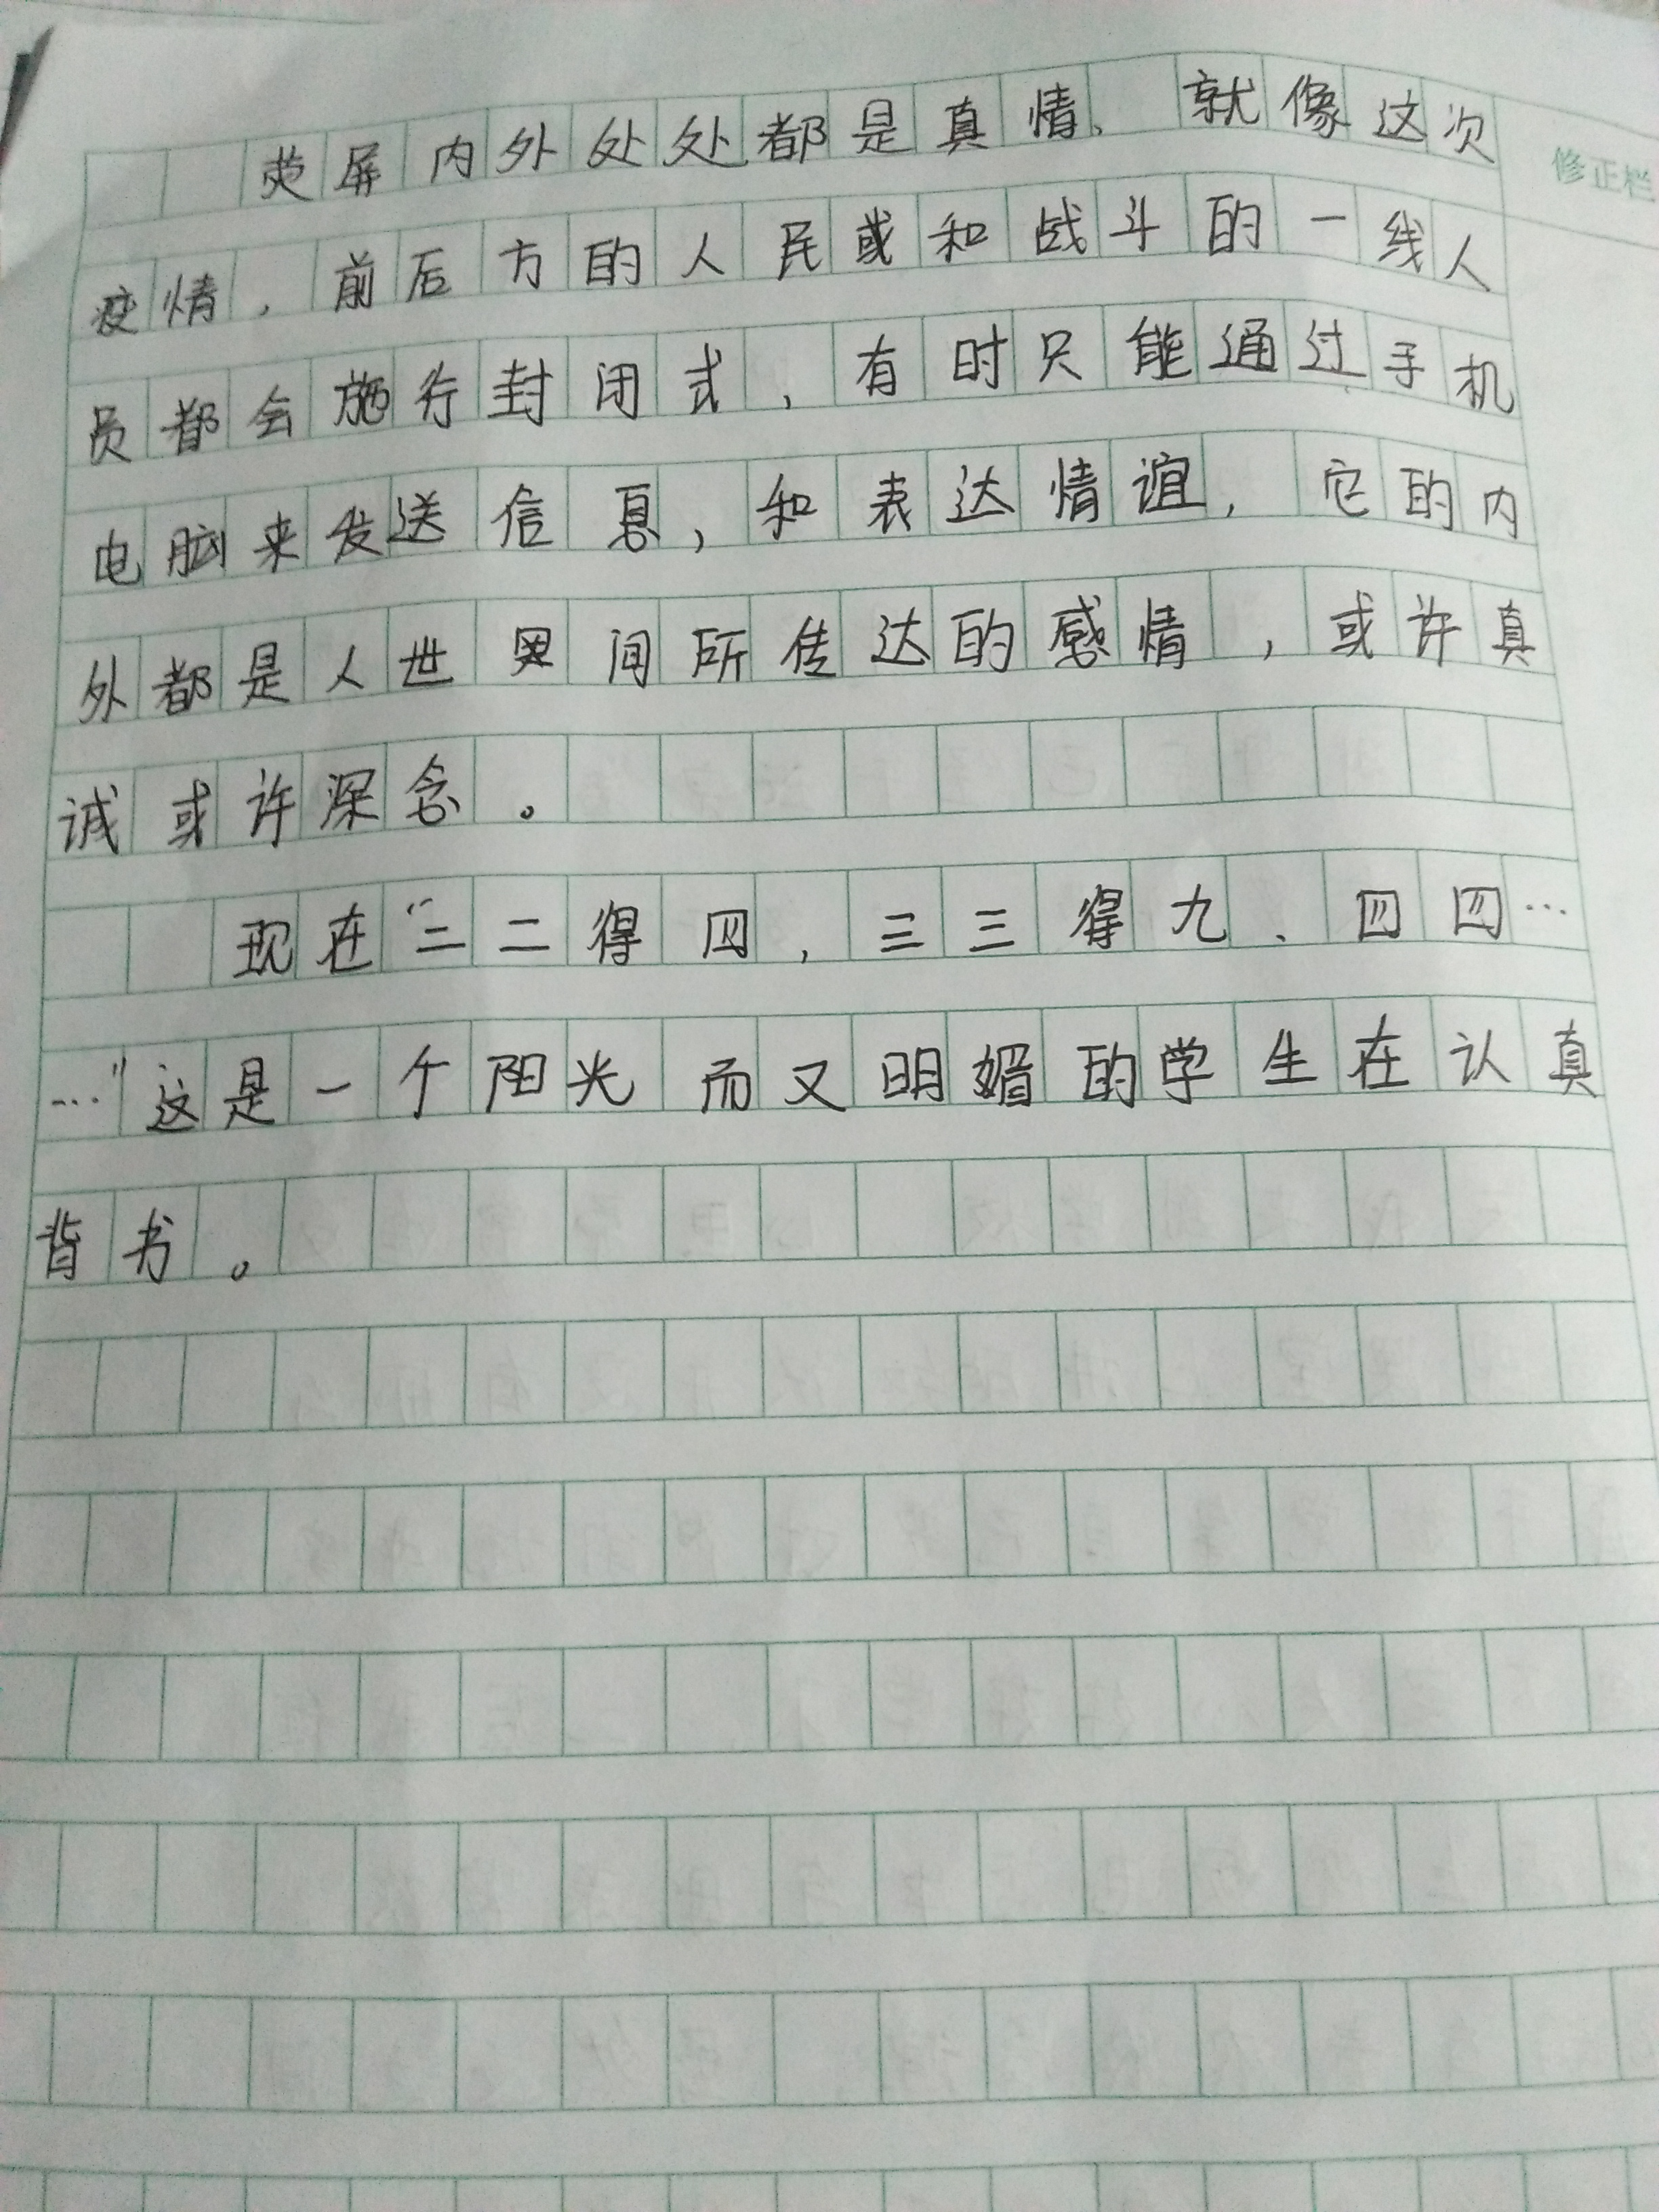 荧屏内外处处都是真情、就像这次
修正栏
疫情，前后方的人民或和战斗的一线人
员都会施行封闭式，有时只能通过手机
电脑来发送信息，和表达情谊，它的内
外都是人世界间所传达的感情，或许真
诚或许深念。
现在“二二得四，三三得九、四四…
…”这是一个阳光而又明媚的学生在认真
背书。